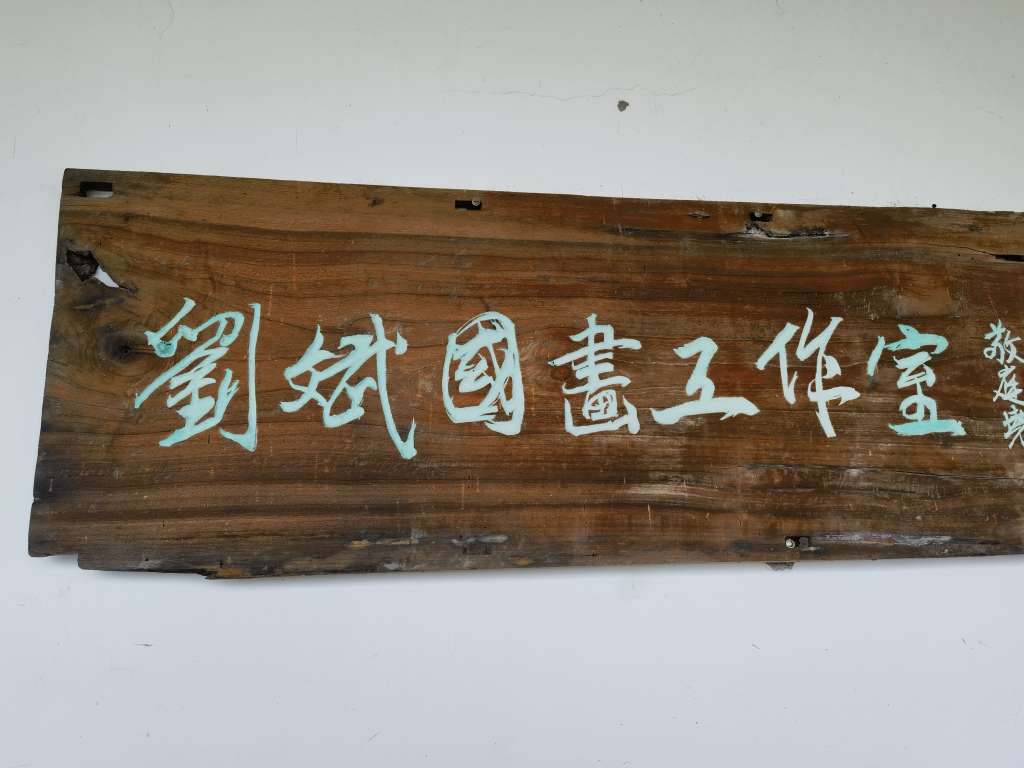 劉斌國畫工作室
敬庭